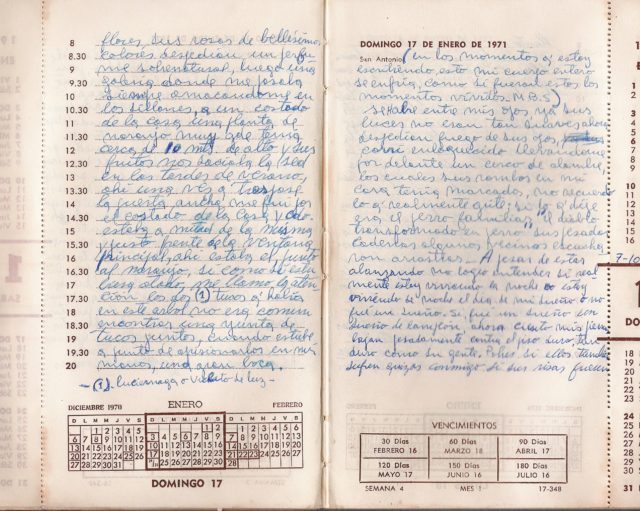 8 flores sus rosas de bellísimos
8.30 colores despedian un perfu
9 me sobrenatural, luego una
9.30 galeria donde me posaba
10 siempre amacandome en
10.30 los sillones, a un costado
11 de la casa una planta de
11.30 naranjo muy que tenia
12 cerca de 10 mts. de alto y sus
12.30 frutos nos saciaba la sed
13 en las tardes de verano,
13.30 ahi una ves a traspase
14 la puerta ancha me fui por
14.30 el costado de la casa y cdo
15 estaba a mitad de la misma
15.30 y justo frente de la ventana
16 principal, ahi estaba el junto
16.30 al naranjo, si como de estu
17 viera atados, me llamo la aten
17.30 cion los dos (1) tucos q' habia
18 en este arbol no era comun
18.30 encontrar una yunta de
19 tucos juntos, cuando estube
19.30 a punto de aprisionarlos en mis
20 manos, una gran boca.
-(1) Luciernaga o Vichito de luz-
DICIEMBRE 1970 ENERO FEBRERO
D L M M J V S
1 2 3 4 5
6 7 8 9 10 11 12
13 14 15 16 17 18 19
20 21 22 23 24 25 26
27 28 29 30 31
D L M M J V S
1 2
3 4 5 6 7 8 9
10 11 12 13 14 15 16
17 18 19 20 21 22 23
24 25 26 27 28 29 30
31
D L M M J V S
1 2 3 4 5 6
7 8 9 10 11 12 13
14 15 16 17 18 19 20
21 22 23 24 25 26 27
28
DOMINGO 17
DOMINGO 17 DE ENERO DE 1971
San Antonio (en los momentos q' estoy
escribiendo, esto mi cuerpo entero
se enfria, como si fueran estos los
momentos vividos. M.B.S)
se habre entre mis ojos ya sus
luces no eran tan suaves ahora
despedian fuego de sus ojos,
corri enloquecido llevandome
por delante un cerco de alambre,
los cuales sus rombos en mi
cara tenia marcados, no recuerdo
lo q' realmente grite; si lo q' dije
era el perro familiar "el diablo
transformado en perro" sus pesadas
cadenas algunos vecinos escucha
ron arrastrar.- A pesar de estar
alcanzando no logro entender si real
mente estoy viviendo la noche o estoy
viviendo de noche el dia, de mi sueño o no
fue un sueño. Si, fue un sueño con
sueño de campeon, ahora ciento mis piern
bajan pesadamente contra el piso duro, tan
duro como su gente. Pobres si ellos tambie
sufren quizas conmigo si sus risas fueran
VENCIMIENTOS
30 Días 60 Días 90 Días
FEBRERO 16 MARZO 18 ABRIL 17
120 Días 150 Días 180 Días
MAYO 17 JUNIO 16 JULIO 16
SEMANA 4 MES 1 17-348